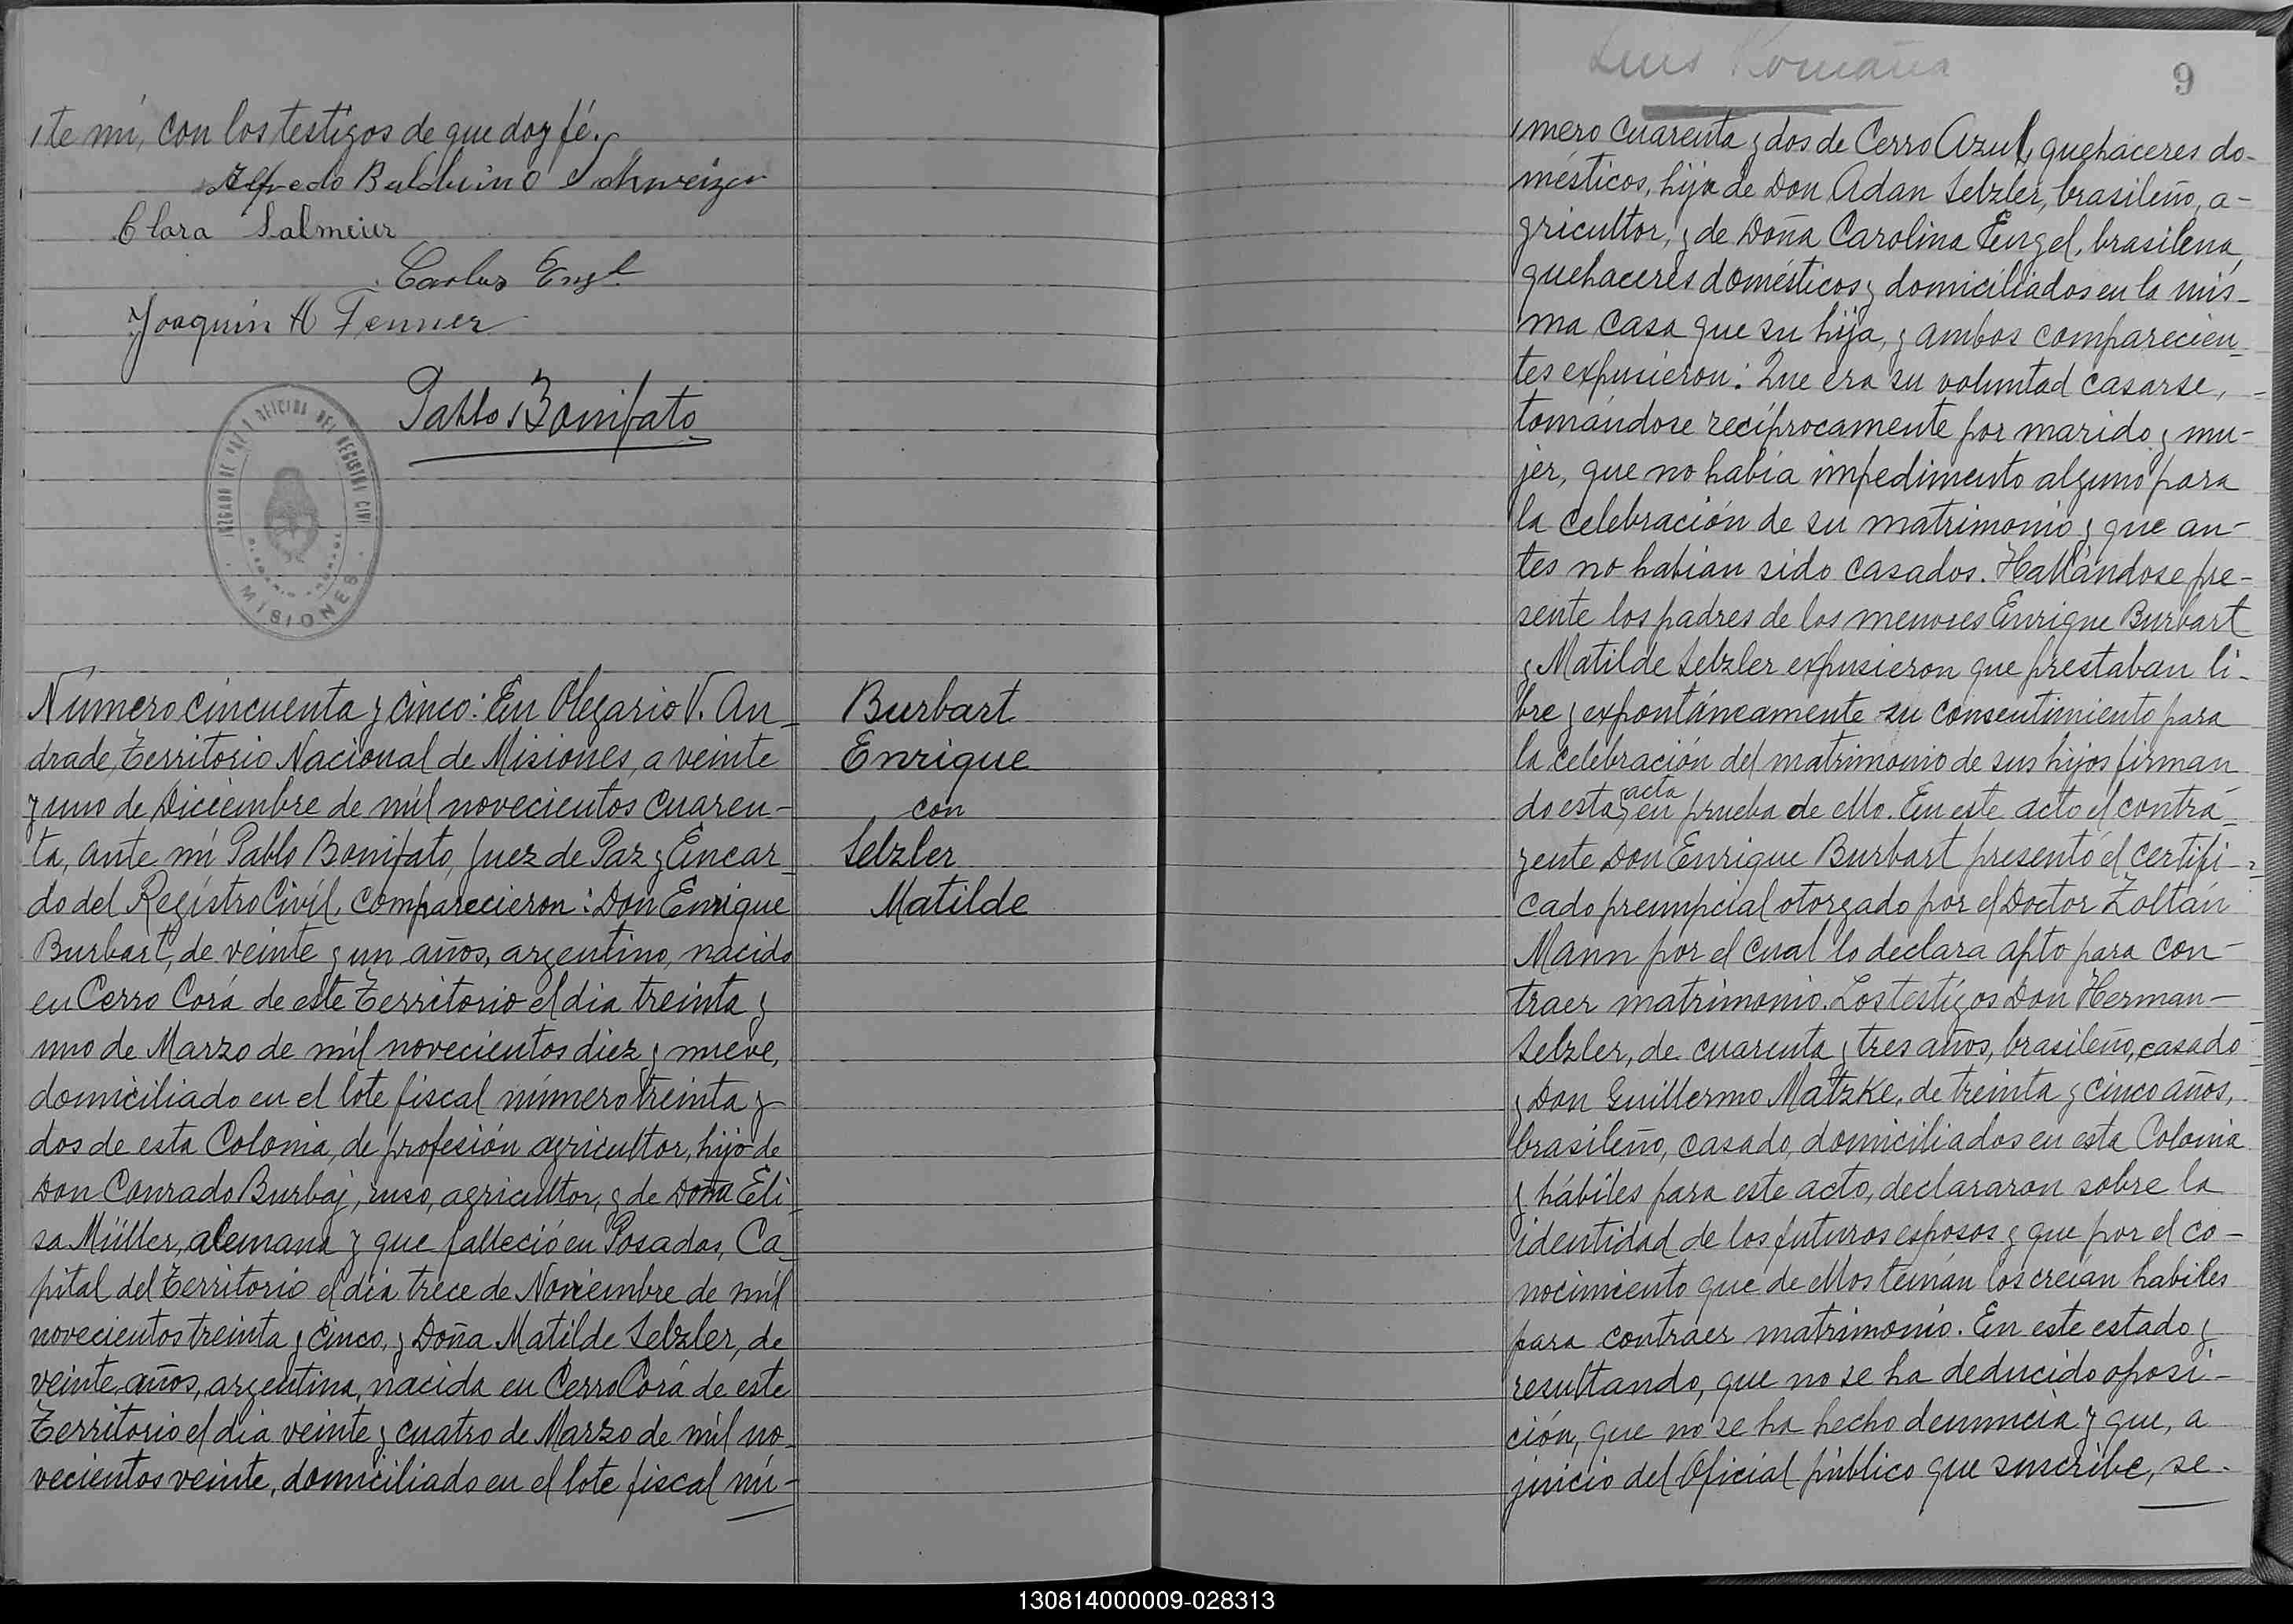 te mí, con los testigos de que doy fé.
Alfredo Balduino Schweizer
Clara Salmeier
Carlos Engl
Joaquin A Fenner
Pablo Bonifato
JUZGADO DE PAZ OFICINA DEL REGISTRO CIVIL
MISIONES
Número cincuenta y cinco: En Olegario V. An-
drade, Territorio Nacional de Misiones, a veinte
y uno de Diciembre de mil novecientos cuaren-
ta, ante mí Pablo Bonifato, Juez de Paz y Encar-
do del Registro Civil, comparecieron: Don Enrique
Burbart, de veinte y un años, argentino, nacido
en Cerro Corá de este Territorio el dia treinta y
uno de Marzo de mil novecientos diez y nueve,
domiciliado en el lote fiscal número treinta y
dos de esta Colonia, de profesión agricultor, hijo de
Don Conrado Burbaj, ruso, agricultor, y de Doña Eli-
sa Müller, alemana y que falleció en Posadas, Ca-
pital del Territorio el dia trece de Noviembre de mil
novecientos treinta y cinco, y Doña Matilde Selzler, de
veinte años, argentina, nacida en Cerro Corá de este
Territorio el dia veinte y cuatro de Marzo de mil no-
vecientos veinte, domiciliado en el lote fiscal nú-
Burbart
Enrique
con
Selzler
Matilde
Luis Romaña
9
mero cuarenta y dos de Cerro Azul, quehaceres do-
mésticos, hija de Don Adan Selzler, brasileño, a-
gricultor, y de Doña Carolina Engel, brasilena,
quehaceres domésticos y domiciliados en la mis-
ma casa que su hija, y ambos comparecien-
tes expusieron: Que era su voluntad casarse,
tomándose recíprocamente por marido y mu-
jer, que no había impedimento alguno para
la celebración de su matrimonio y que an-
tes no habían sido casados. Hallándose pre-
sente los padres de los menores Enrique Burbart
y Matilde Selzler expusieron que prestaban li-
bre y expontáneamente su consentimiento para
la celebración del matrimonio de sus hijos firman
do esta acta en prueba de ello. En este acto el contra-
yente Don Enrique Burbart presentó el certifi-
cado prenupcial otorgado por el Doctor Zoltán
Mann por el cual lo declara apto para con-
traer matrimonio. Los testigos Don Herman-
Selzler, de cuarenta y tres años, brasileño, casado
y Don Guillermo Matzke, de treinta y cinco años,
brasileño, casado, domiciliados en esta Colonia
y hábiles para este acto, declararon sobre la
identidad de los futuros esposos y que por el co-
nocimiento que de ellos tenían los creían habiles
para contraer matrimonio. En este estado y
resultando, que no se ha deducido oposi-
ción, que no se ha hecho denuncia y que, a
juicio del Oficial público que suscribe, se-
130814000009-028313